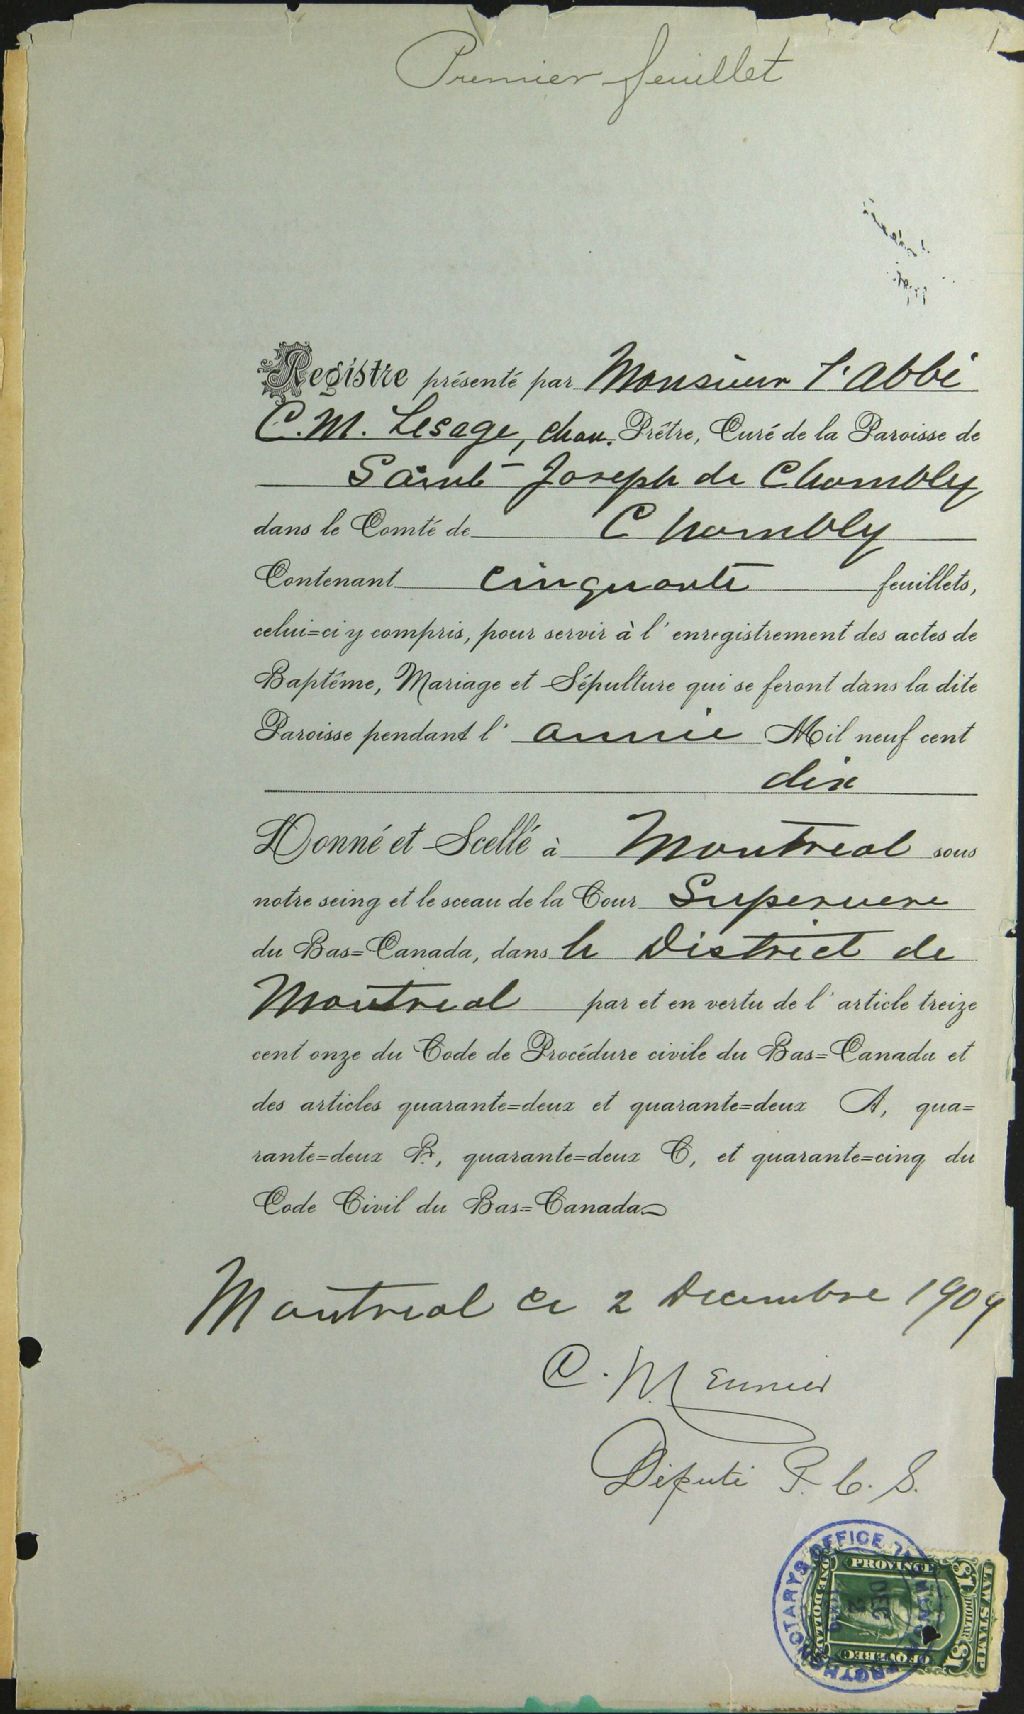 1
Premier feuillet
Registre présenté par Monsieur l'abbé
C. M. Lesage, chan. Prêtre, Curé de la Paroisse de
Saint-Joseph de Chambly
dans le Comté de Chambly
Contenant cinquante feuillets,
celui=ci y compris, pour servir à l'enregistrement des actes de
Baptême, Mariage et Sépulture qui se feront dans la dite
Paroisse pendant l'année Mil neuf cent
dix
Donné et Scellé à Montreal sous
notre seing et le sceau de la Cour Superieure
du Bas=Canada, dans le District de
Montreal par et en vertu de l'article treize
cent onze du Code de Procédure civile du Bas=Canada et
des articles quarante=deux et quarante=deux A, qua=
rante=deux B, quarante=deux C, et quarante=cinq du
Code Civil du Bas=Canada
Montreal ce 2 Decembre 1909
C. Meunier
Député P. C. S.
PROTHONOTARY'S OFFICE
DEC
2
1909
PROVINCE
OF QUEBEC
ONE DOLLAR
$1 DOLLAR $1
LAW STAMP